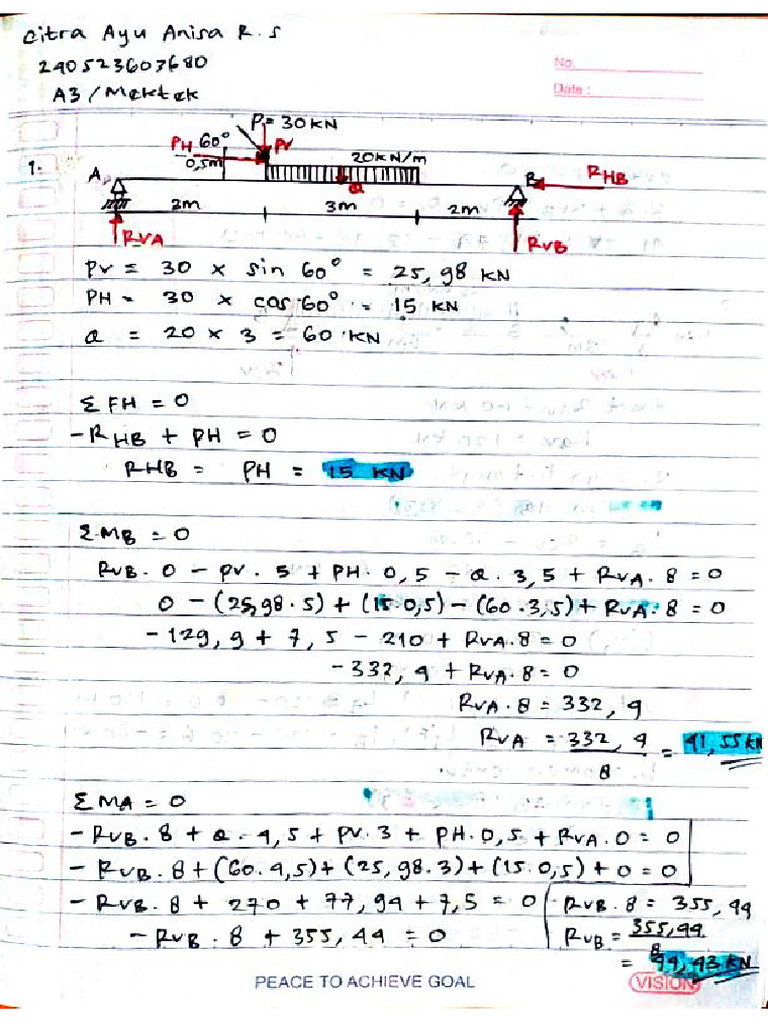 Citra Ayu Anisa R.S
240523603680
A3/Mektek
No.
Date :
P = 30 KN
PH 60° PV
0,5m
20 KN/m
1.
A
Q
B
RHB
3m 3m 2m
RVA RVB
PV = 30 x sin 60° = 25,98 KN
PH = 30 x cos 60° = 15 KN
Q = 20 x 3 = 60 KN
Σ FH = 0
-RHB + PH = 0
RHB = PH = 15 KN
Σ MB = 0
RVB . 0 - PV . 5 + PH . 0,5 - Q . 3,5 + RVA . 8 = 0
0 - (25,98 . 5) + (15 . 0,5) - (60 . 3,5) + RVA . 8 = 0
-129,9 + 7,5 - 210 + RVA . 8 = 0
-332,4 + RVA . 8 = 0
RVA . 8 = 332,4
RVA = 332,4 / 8 = 41,55 KN
Σ MA = 0
-RVB . 8 + Q . 4,5 + PV . 3 + PH . 0,5 + RVA . 0 = 0
-RVB . 8 + (60 . 4,5) + (25,98 . 3) + (15 . 0,5) + 0 = 0
-RVB . 8 + 270 + 77,94 + 7,5 = 0
-RVB . 8 + 355,44 = 0
-RVB . 8 = 355,44
RVB = 355,44 / 8
= 44,43 KN
PEACE TO ACHIEVE GOAL
VISION